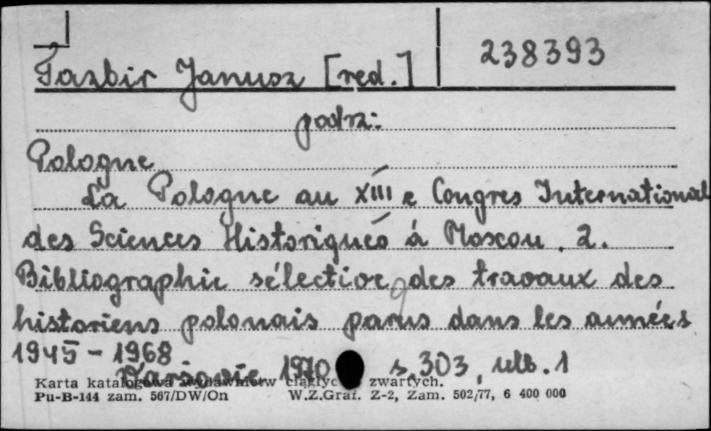 Tazbir Janusz [red.] 238393
podrz:
Pologne
La Pologne au XIII e Congres International
des Sciences Historiques à Moscou. 2.
Bibliographie sélective des travaux des
historiens polonais parus dans les années
1945 - 1968.
Varsovie 1970 s. 303, nlb. 1
Karta katalogowa wydawnictw ciągłych i zwartych.
Pu-B-144 zam. 567/DW/On W.Z.Graf. Z-2, Zam. 502/77, 6 400 000